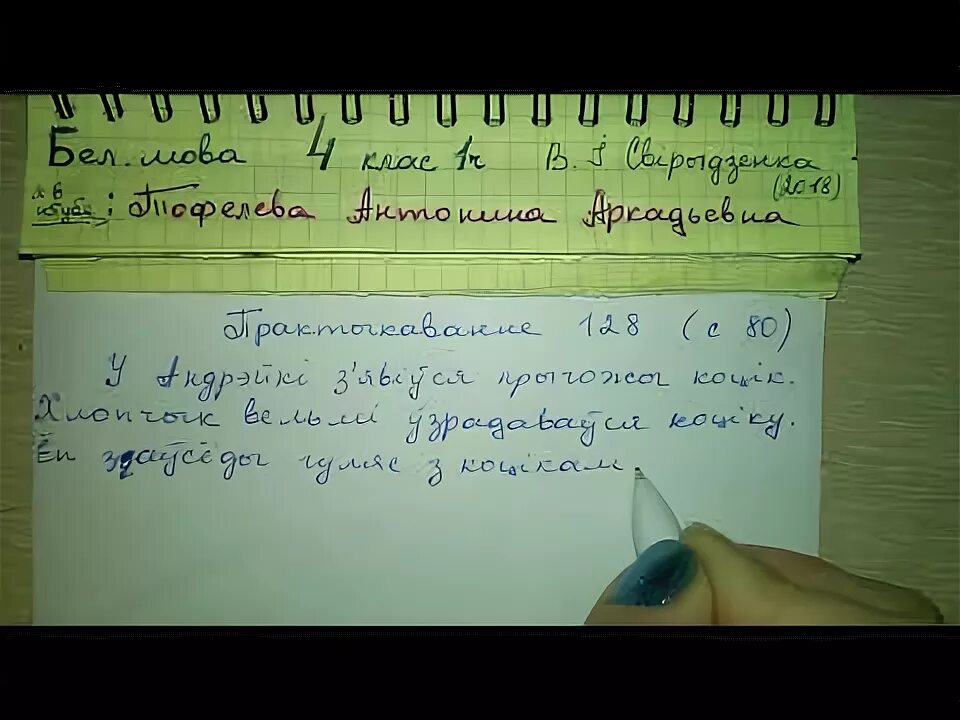 Бел. мова 4 клас 1ч В. І Свірыдзенка
(2018)
Тофелева Антонина Аркадьевна
Практыкаванне 128 (с 80)
У Андрэйкі з'явіўся прыгожы коцік.
Хлопчык вельмі ўзрадаваўся коціку.
Ён заўсёды гуляе з коцікам